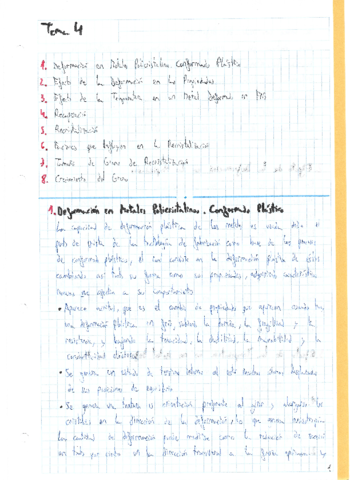 Tema 4
1. Deformació en Metales Policristalinos. Conformado Plástico
2. Efecto de la Deformació en las Propiedades
3. Efecto de la Temperatura en un Metal Deformado en
4. Recuperació
5. Recristalizació
6. Factores que Influyen en la Recristalizació
7. Tamaño de Grano de Recristalizació
8. Crecimiento del Grano
1. Deformación en Metales Policristalinos. Conformado Plástico
La capacidad de deformació plástica de los metales es usada desde el
punto de vista de la tecnología de fabricació como base de los procesos
de conformado plástico, el cual consiste en la deformació plástica de éstos
cambiando así tanto su forma como sus propiedades, adquiriendo características
nuevas que afectan a su comportamiento.
• Aparece acritud, que es el cambio de propiedades que aparecen cuando hay
una deformació plástica en frío, subiendo la dureza, la fragilidad y la
resistencia, y bajando la tenacidad, la ductilidad, la maleabilidad y la
conductividad eléctrica.
• Se genera un estado de tensiones internas al estar los átomos desplazados
de sus posiciones de equilibrio.
• Se genera una textura u orientació preferente al girar y alargarse los
cristales en la dirección de la deformació,
La cantidad de deformació puede medirse como la reducció de secció
1